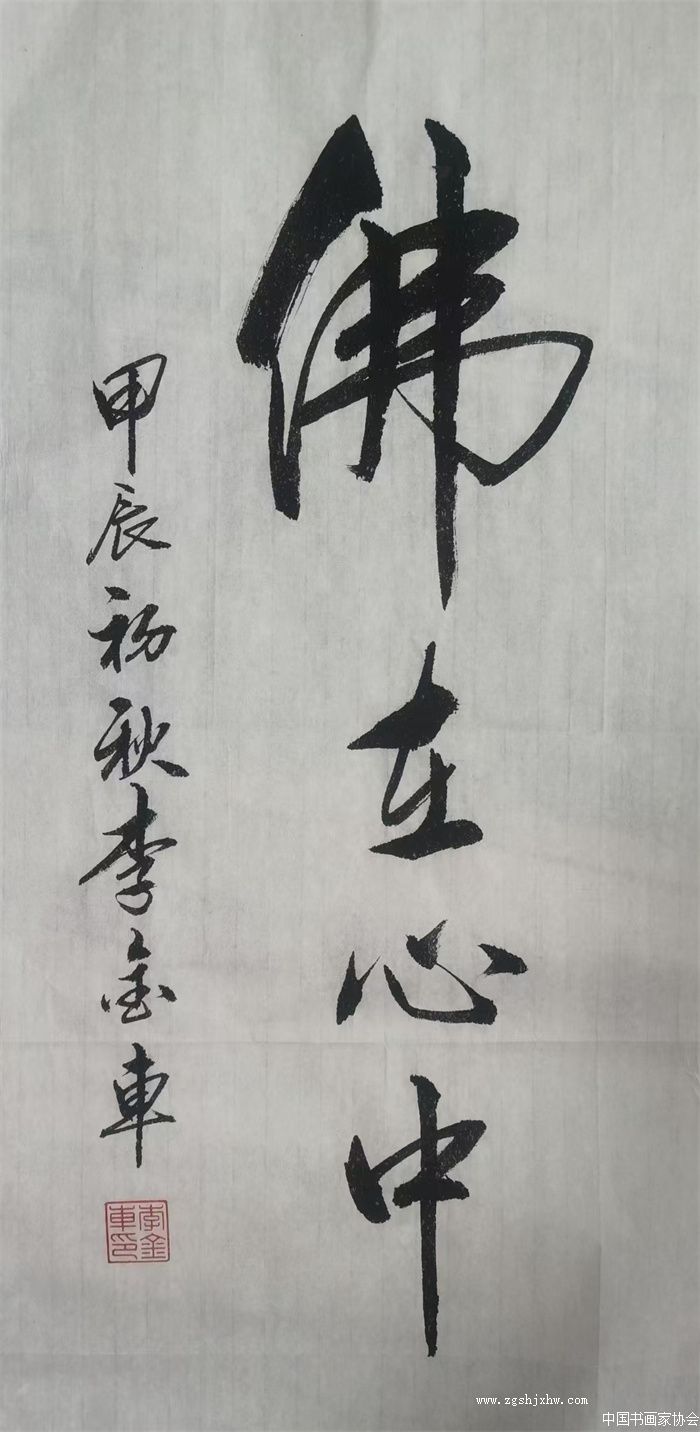 佛在心中
甲辰初秋李金車
李金車印
www.zgshjxhw.com
中国书画家协会